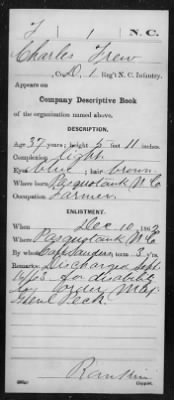 F | 1 | N. C.
Charles Frew
, Co. D, 1 Reg't N. C. Infantry.
Appears on
Company Descriptive Book
of the organization named above.
DESCRIPTION.
Age 37 years; height 5 feet 11 inches.
Complexion Light
Eyes blue ; hair brown
Where born Pasquotank N. C.
Occupation Farmer
ENLISTMENT.
When Dec 10 , 186
Where Pasquotank N. C.
By whom Capt Sanders ; term 3 y'rs.
Remarks: Discharged Sept.
16/63 for disability
by order Maj.
Genl Peck
Rankin
Copyist.